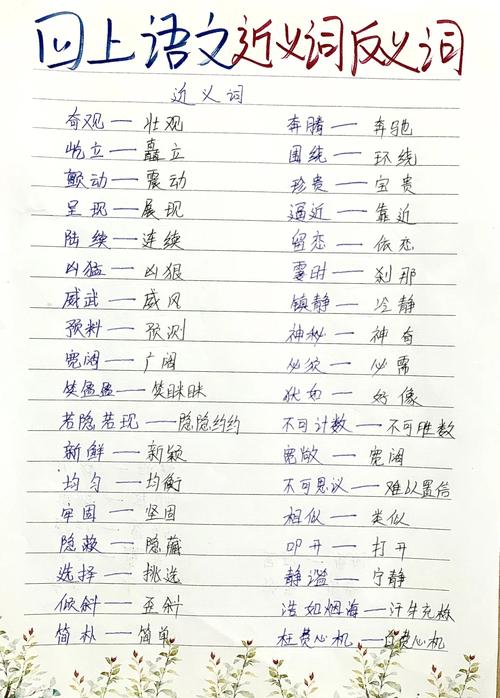 四上语文近义词反义词
近义词
奇观——壮观
屹立——矗立
颤动——震动
呈现——展现
陆续——连续
凶猛——凶狠
威武——威风
预料——预测
宽阔——广阔
笑盈盈——笑眯眯
若隐若现——隐隐约约
新鲜——新颖
均匀——均衡
牢固——坚固
隐蔽——隐藏
选择——挑选
倾斜——歪斜
简朴——简单
奔腾——奔驰
围绕——环绕
珍贵——宝贵
逼近——靠近
留恋——依恋
霎时——刹那
镇静——冷静
神秘——神奇
必须——必需
犹如——好像
不可计数——不可胜数
宽敞——宽阔
不可思议——难以置信
相似——类似
叩开——打开
静谧——宁静
浩如烟海——汗牛充栋
枉费心机——白费心机